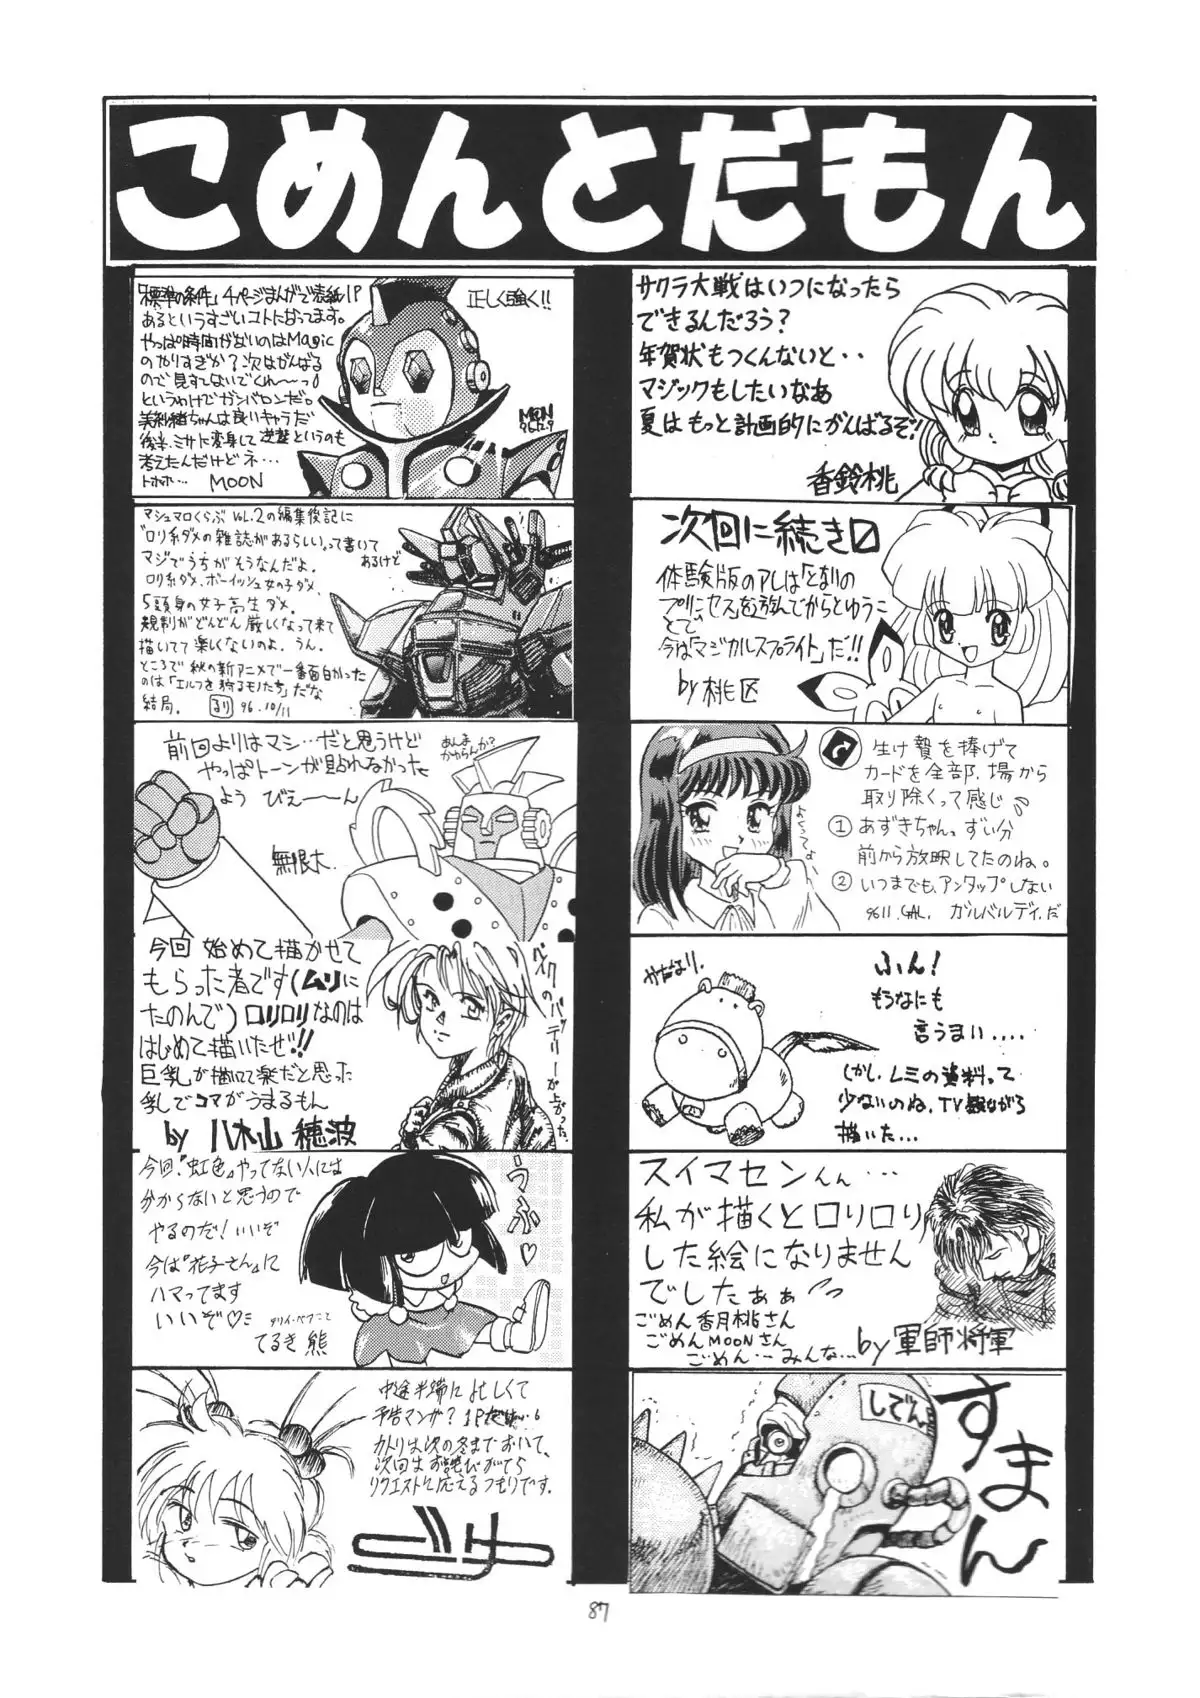 こめんとだもん
「標準の条件」4ページまんがで表紙1P
あるというすごいコトになってます。
やっぱ時間がないのはMagic
のやりすぎか?次はがんばる
ので見すてないでくれ〜っ
というわけでガンバロンだ。
美紗緒ちゃんは良いキャラだ
後半ミサト変身して逆襲というのも
考えたんだけどネ…
トホホ… MOON
正しく強く!!
MOON
96.12.9
サクラ大戦はいつになったら
できるんだろう?
年賀状もつくんないと・・
マジックもしたいなあ
夏はもっと計画的にがんばるぞ!
香鈴桃
マシュマロくらぶ vol.2の編集後記に
"ロリ系ダメの雑誌があるらしい"って書いて
あるけど
マジでうちがそうなんだよ.
ロリ系ダメ、ボーイッシュ女の子ダメ
5頭身の女子高生ダメ.
規制がどんどん厳しくなって来て
描いてて楽しくないのよ.うん.
ところで秋の新アニメで一番面白かった
のは「エルフを狩るモノたち」だな
結局.
るり 96.10/11
次回に続き
体験版のアレは「となりの
プリンセス」を遊んでからとゆうこ
とで
今は「マジカルスプライト」だ!!
by 桃区
前回よりはマシ…だと思うけど
やっぱトーンが貼れなかった
よう びえーーん
あんま
かわらんか?
無限大.
生け贄を捧げて
カードを全部、場から
取り除くって感じ
① あずきちゃん。ずい分
前から放映してたのね。
② いつまでも、アンタップしない
9611.GAL. ガルバルディ.だ
今回 始めて描かせて
もらった者です(ムリに
たのんで)ロリロリなのは
はじめて描いたぜ!!
巨乳が描いてて楽だと思った
乳でコマがうまるもん
by 八木山 穂波
バイクのバッテリーが上がった.
ふん!
もうなにも
言うまい....
しかし、レミの資料って
少ないのね、TV観ながら
描いた...
今回.「虹色」やってない人には
分からないと思うので
やるのだ!いいぞ
今は「花子さん」に
ハマってます
いいぞ♡
てるき熊
うふ♡
スイマセンんん…
私が描くとロリロリ
した絵になりません
でしたぁぁ
ごめん香月桃さん
ごめんMOONさん
ごめん…みんな…
by 軍師将軍
中途半端に忙しくて
予告マンガ?
カトリは次の冬までおいて、
次回はお詫びがてら
リクエストに応えるつもりです.
しでん
すまん
87